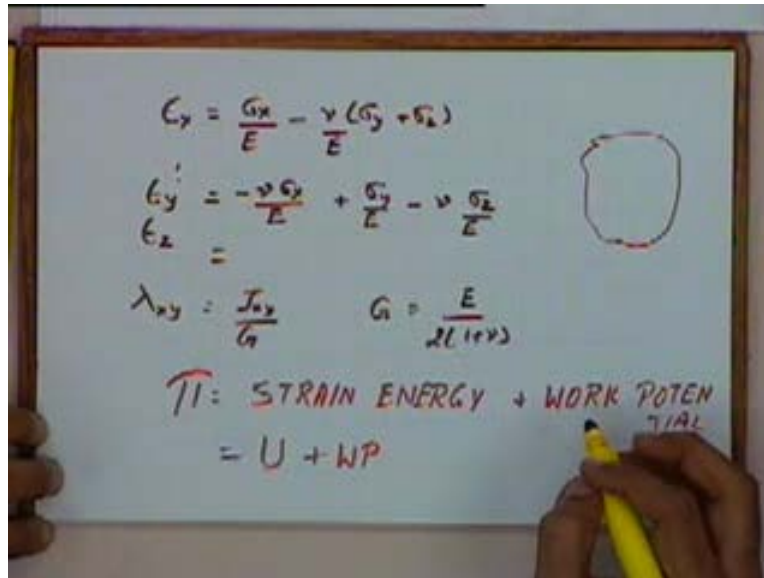 ϵx = σx/E − ν/E (σy + σz)
ϵy = −νσx/E + σy/E − ν σz/E
ϵz =
λxy = τxy/G G = E/2(1+ν)
π = STRAIN ENERGY + WORK POTEN
TIAL
= U + WP